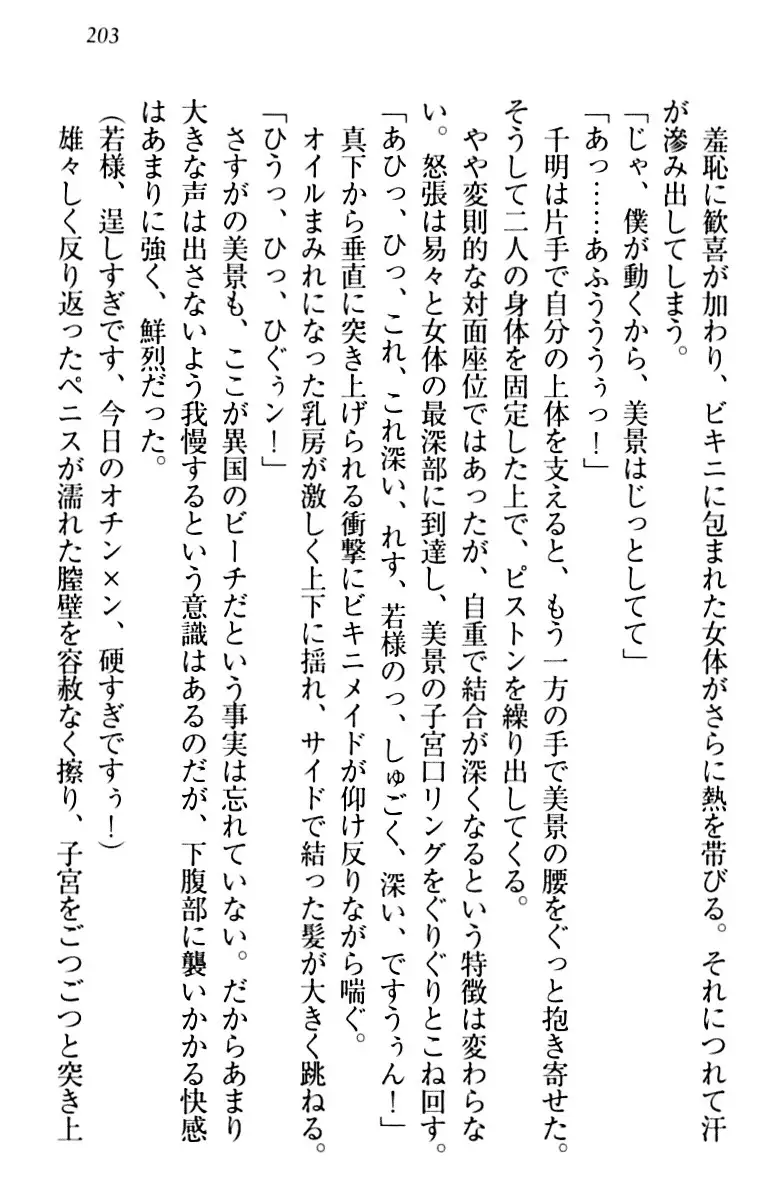 203
羞恥に歓喜が加わり、ビキニに包まれた女体がさらに熱を帯びる。それにつれて汗
が滲み出してしまう。
「じゃ、僕が動くから、美景はじっとしてて」
「あっ……あふうううぅっ！」
千明は片手で自分の上体を支えると、もう一方の手で美景の腰をぐっと抱き寄せた。
そうして二人の身体を固定した上で、ピストンを繰り出してくる。
やや変則的な対面座位ではあったが、自重で結合が深くなるという特徴は変わらな
い。怒張は易々と女体の最深部に到達し、美景の子宮口リングをぐりぐりとこね回す。
「あひっ、ひっ、これ、これ深い、れす、若様のっ、しゅごく、深い、ですうぅん！」
真下から垂直に突き上げられる衝撃にビキニメイドが仰け反りながら喘ぐ。
オイルまみれになった乳房が激しく上下に揺れ、サイドで結った髪が大きく跳ねる。
「ひうっ、ひっ、ひぐぅン！」
さすがの美景も、ここが異国のビーチだという事実は忘れていない。だからあまり
大きな声は出さないよう我慢するという意識はあるのだが、下腹部に襲いかかる快感
はあまりに強く、鮮烈だった。
（若様、逞しすぎです、今日のオチン×ン、硬すぎですぅ！）
雄々しく反り返ったペニスが濡れた膣壁を容赦なく擦り、子宮をごつごつと突き上